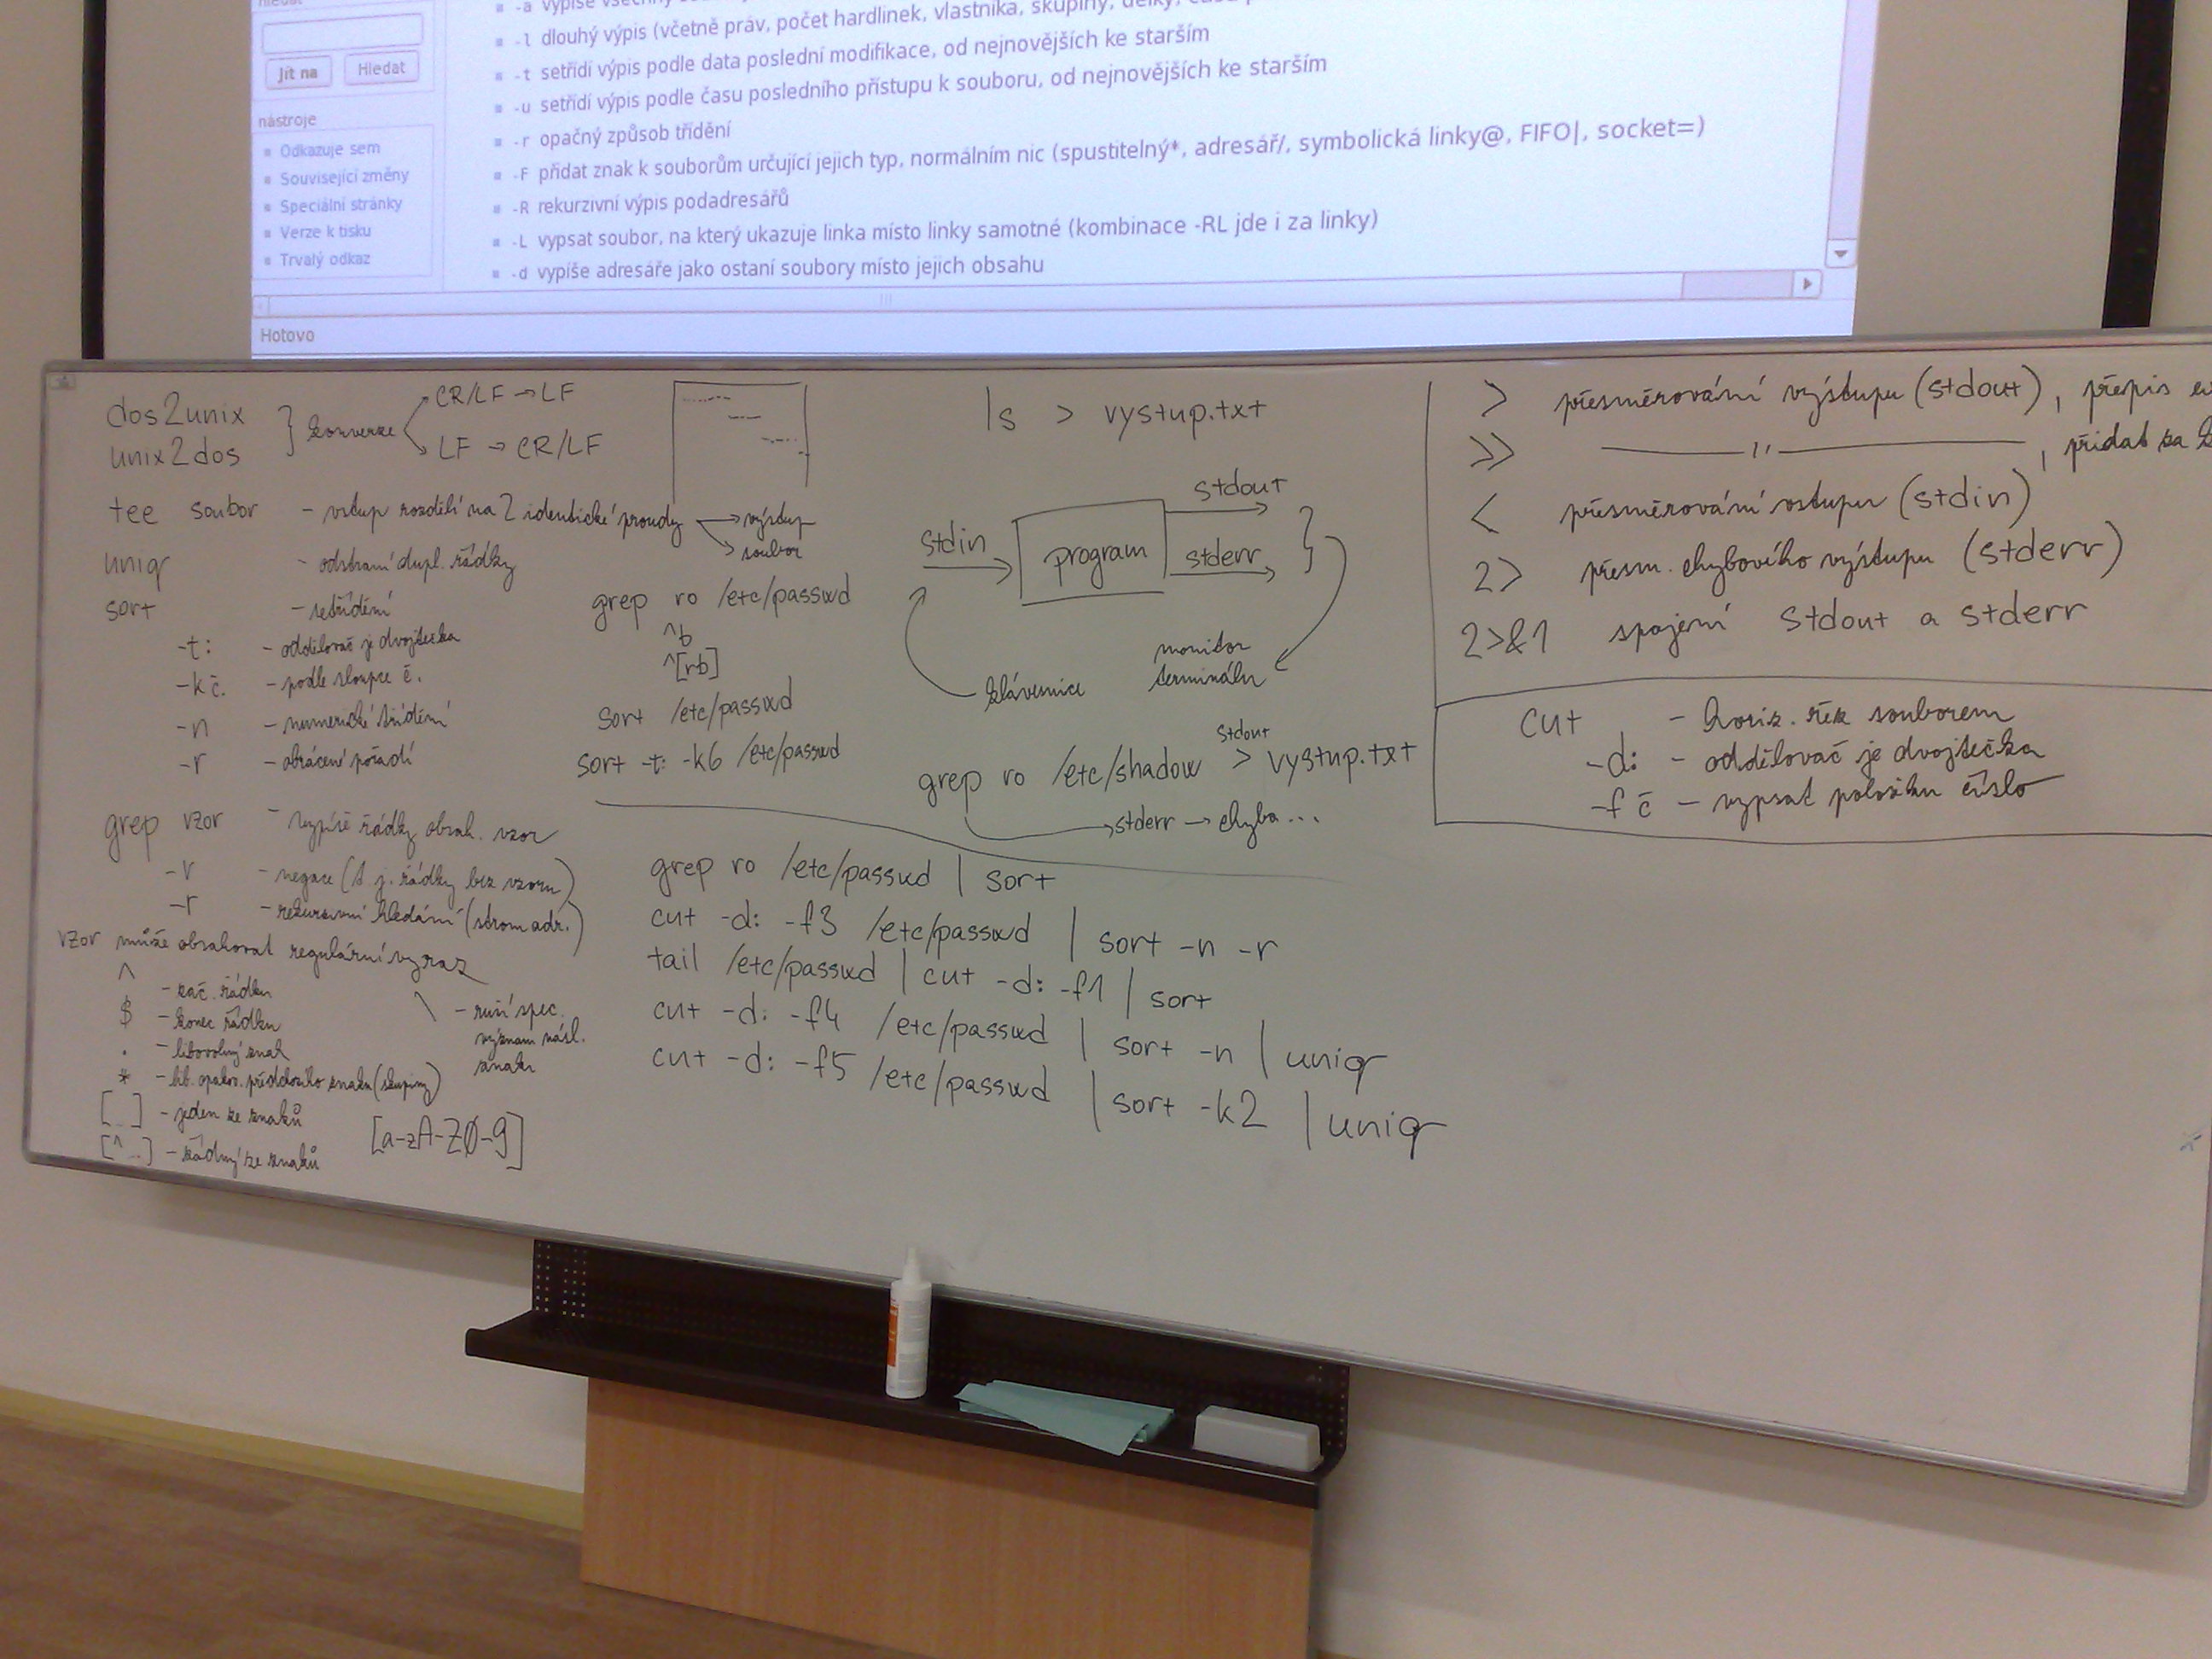 hledat
Jít na
Hledat
nástroje
Odkazuje sem
Související změny
Speciální stránky
Verze k tisku
Trvalý odkaz
-a vypíše
-l dlouhý výpis (včetně práv, počet hardlinek, vlastníka, skupiny, délky,
-t setřídí výpis podle data poslední modifikace, od nejnovějších ke starším
-u setřídí výpis podle času posledního přístupu k souboru, od nejnovějších ke starším
-r opačný způsob třídění
-F přidat znak k souborům určující jejich typ, normálním nic (spustitelný*, adresář/, symbolická linky@, FIFO|, socket=)
-R rekurzivní výpis podadresářů
-L vypsat soubor, na který ukazuje linka místo linky samotné (kombinace -RL jde i za linky)
-d vypíše adresáře jako ostaní soubory místo jejich obsahu
Hotovo
dos2unix
unix2dos
} konverze
CR/LF → LF
LF → CR/LF
tee soubor - vstup rozdělí na 2 identické proudy → výstup
→ soubor
uniq - odstraní dupl. řádky
sort - setřídění
-t: - oddělovač je dvojtečka
-k č. - podle sloupce č.
-n - numerické třídění
-r - obrácené pořadí
grep vzor - vypíše řádky obsah. vzor
-v - negace (t.j. řádky bez vzoru)
-r - rekursivní hledání (strom adr.)
vzor může obsahovat regulární výraz
^ - zač. řádku
$ - konec řádku
. - libovolný znak
* - lib. opakov. předchozího znaku (skupiny)
[...] - jeden ze znaků
[^...] - žádný ze znaků
\ - ruší spec.
význam násl.
znaku
[a-zA-Z0-9]
grep ro /etc/passwd
^b
^[rb]
sort /etc/passwd
sort -t: -k6 /etc/passwd
ls > vystup.txt
stdin
program
stdout
stderr
klávesnice
monitor
terminálu
stdout
grep ro /etc/shadow > vystup.txt
→ stderr → chyba ...
grep ro /etc/passwd | sort
cut -d: -f3 /etc/passwd | sort -n -r
tail /etc/passwd | cut -d: -f1 | sort
cut -d: -f4 /etc/passwd | sort -n | uniq
cut -d: -f5 /etc/passwd | sort -k2 | uniq
> přesměrování výstupu (stdout), přepis
>> ——— " ———, přidat za
< přesměrování vstupu (stdin)
2> přesm. chybového výstupu (stderr)
2>&1 spojení stdout a stderr
cut - horiz. řez souborem
-d: - oddělovač je dvojtečka
-f č - vypsat položku číslo